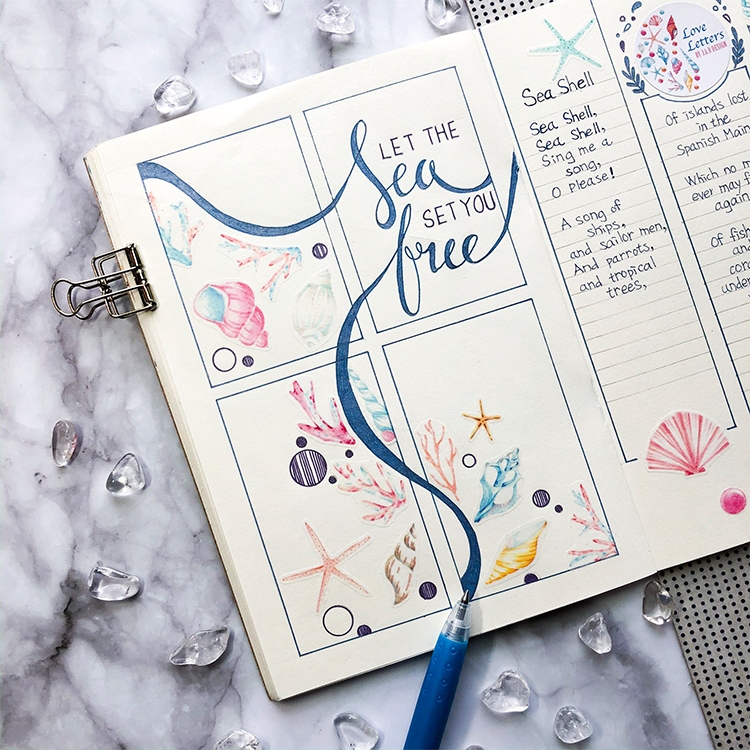 LET THE
Sea
SET YOU
free
Sea Shell
Sea Shell,
Sea Shell,
Sing me a
song,
O Please!
A song of
ships,
and sailor men,
And parrots,
and tropical
trees,
Love
Letters
Of islands lost
in the
Spanish Main
Which no m
ever may f
again
Of fish
and
cor
under